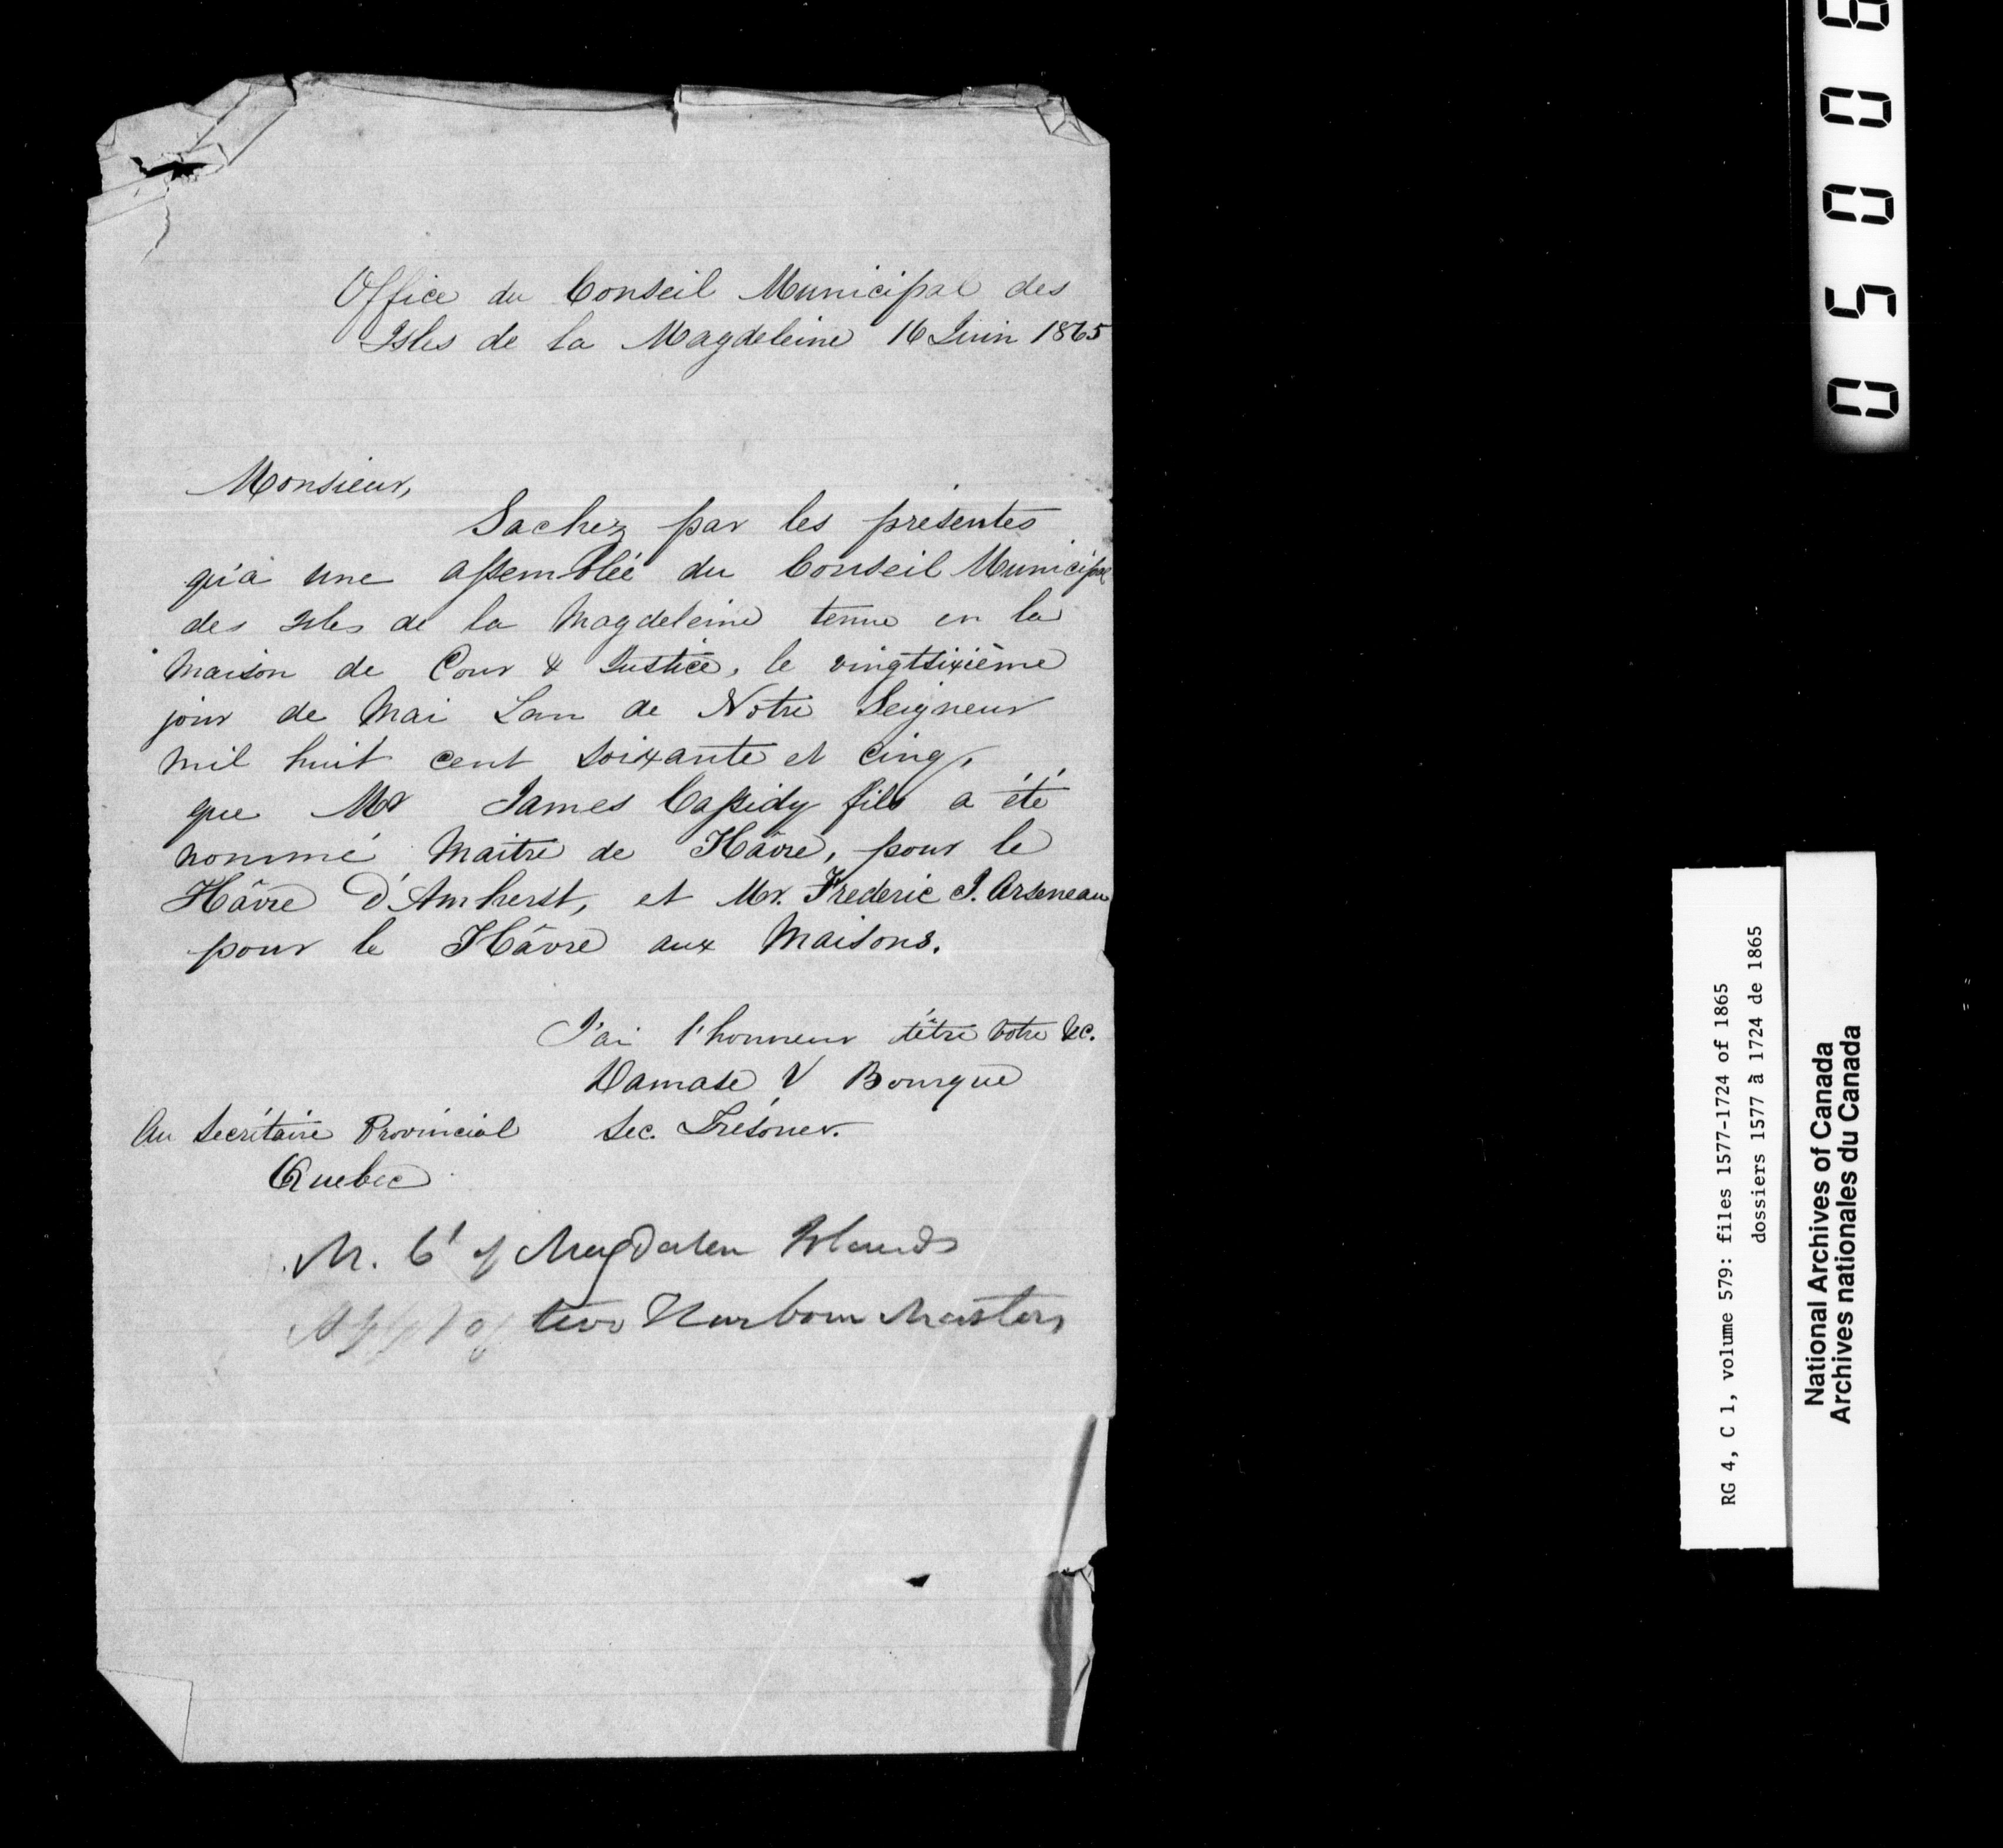 Office du Conseil Municipal des
Isles de la Magdeleine 16 Juin 1865
Monsieur,
Sachez par les présentes
qu'à une assemblée du Conseil Municipal
des Isles de la Magdeleine tenue en la
Maison de Cour & Justice, le vingtsixième
jour de Mai Lan de Notre Seigneur
Mil huit cent soixante et cinq,
que Mr James Cassidy fils a été
nommé Maitre de Hâvre, pour le
Hâvre D'Amherst, et Mr. Frederic J. Arseneau
pour le Hâvre aux Maisons.
J'ai l'honneur d'être votre &c.
Damase V Bourque
Au Secrétaire Provincial Sec. Trésorier.
Quebec
M. Cl of Magdalen Islands
of two Harbour Masters
0500
RG 4, C 1, volume 579: files 1577-1724 of 1865
dossiers 1577 à 1724 de 1865
National Archives of Canada
Archives nationales du Canada